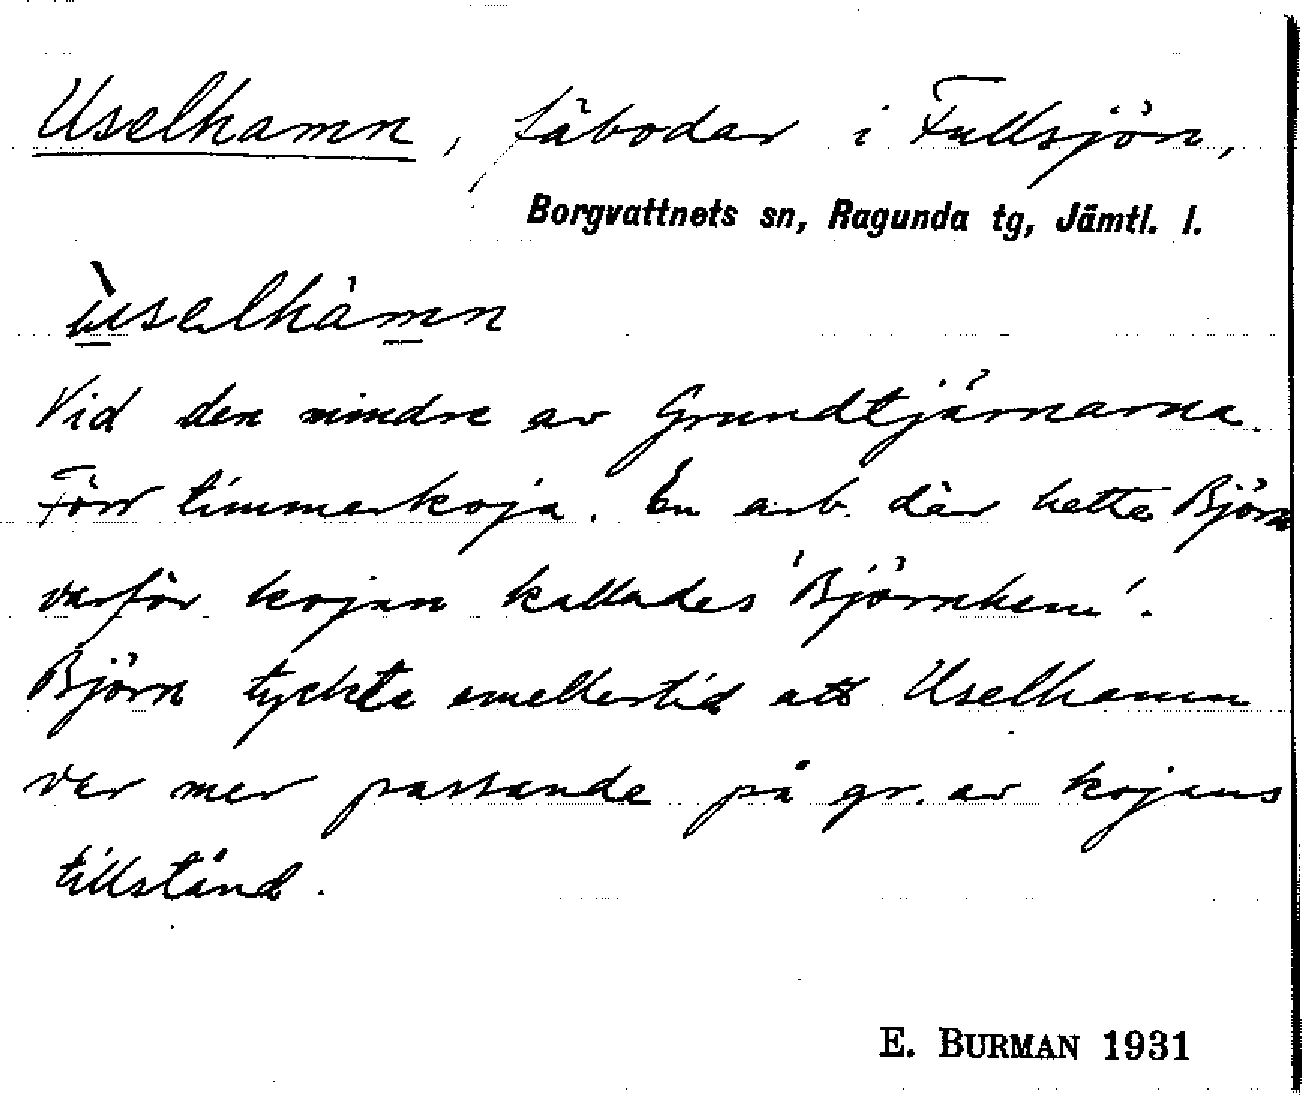 Uselhamn, fäbodar i Fullsjön,
Borgvattnets sn, Ragunda tg, Jämtl. l.
ùselhámn
Vid den mindre av Grundtjärnarna.
Förr timmerkoja. En arb. där hette Björn
varför kojan kallades 'Björnhem'.
Björn tyckte emellertid att Uselhamn
var mer passande på gr. av kojans
tillstånd.
E. BURMAN 1931